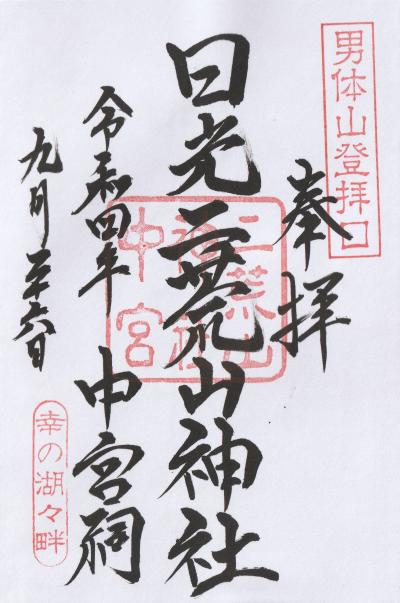 男体山登拝口
奉拝
日光二荒山神社
中宮祠
令和四年
九月二十六日
二荒山神社中宮
幸の湖々畔